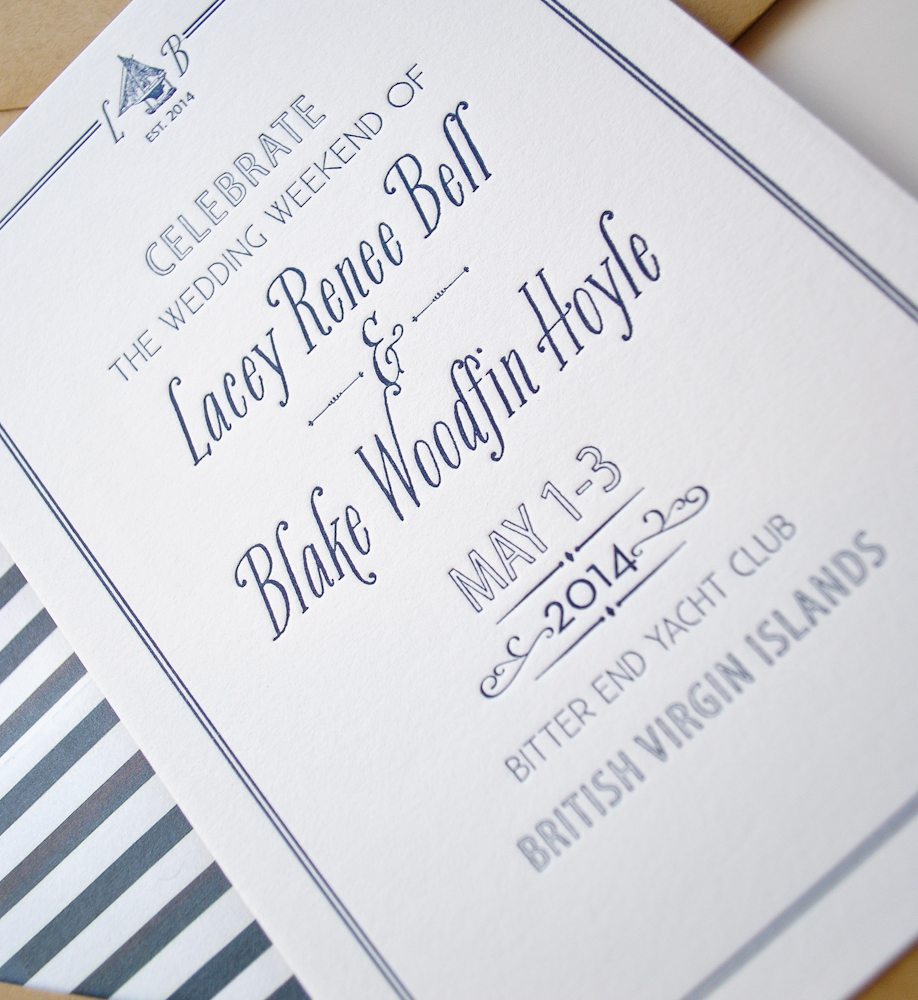 L B
EST. 2014
CELEBRATE
THE WEDDING WEEKEND OF
Lacey Renee Bell
&
Blake Woodfin Hoyle
MAY 1-3
2014
BITTER END YACHT CLUB
BRITISH VIRGIN ISLANDS